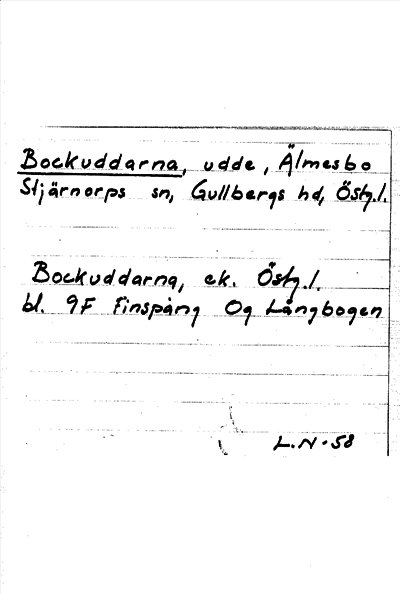 Bockuddarna, udde, Älmesbo
Stjärnorps sn, Gullbergs hd, Östg.l.
Bockuddarna, ek. Östg.l.
bl. 9F Finspång 0g Långbogen
L.N-58